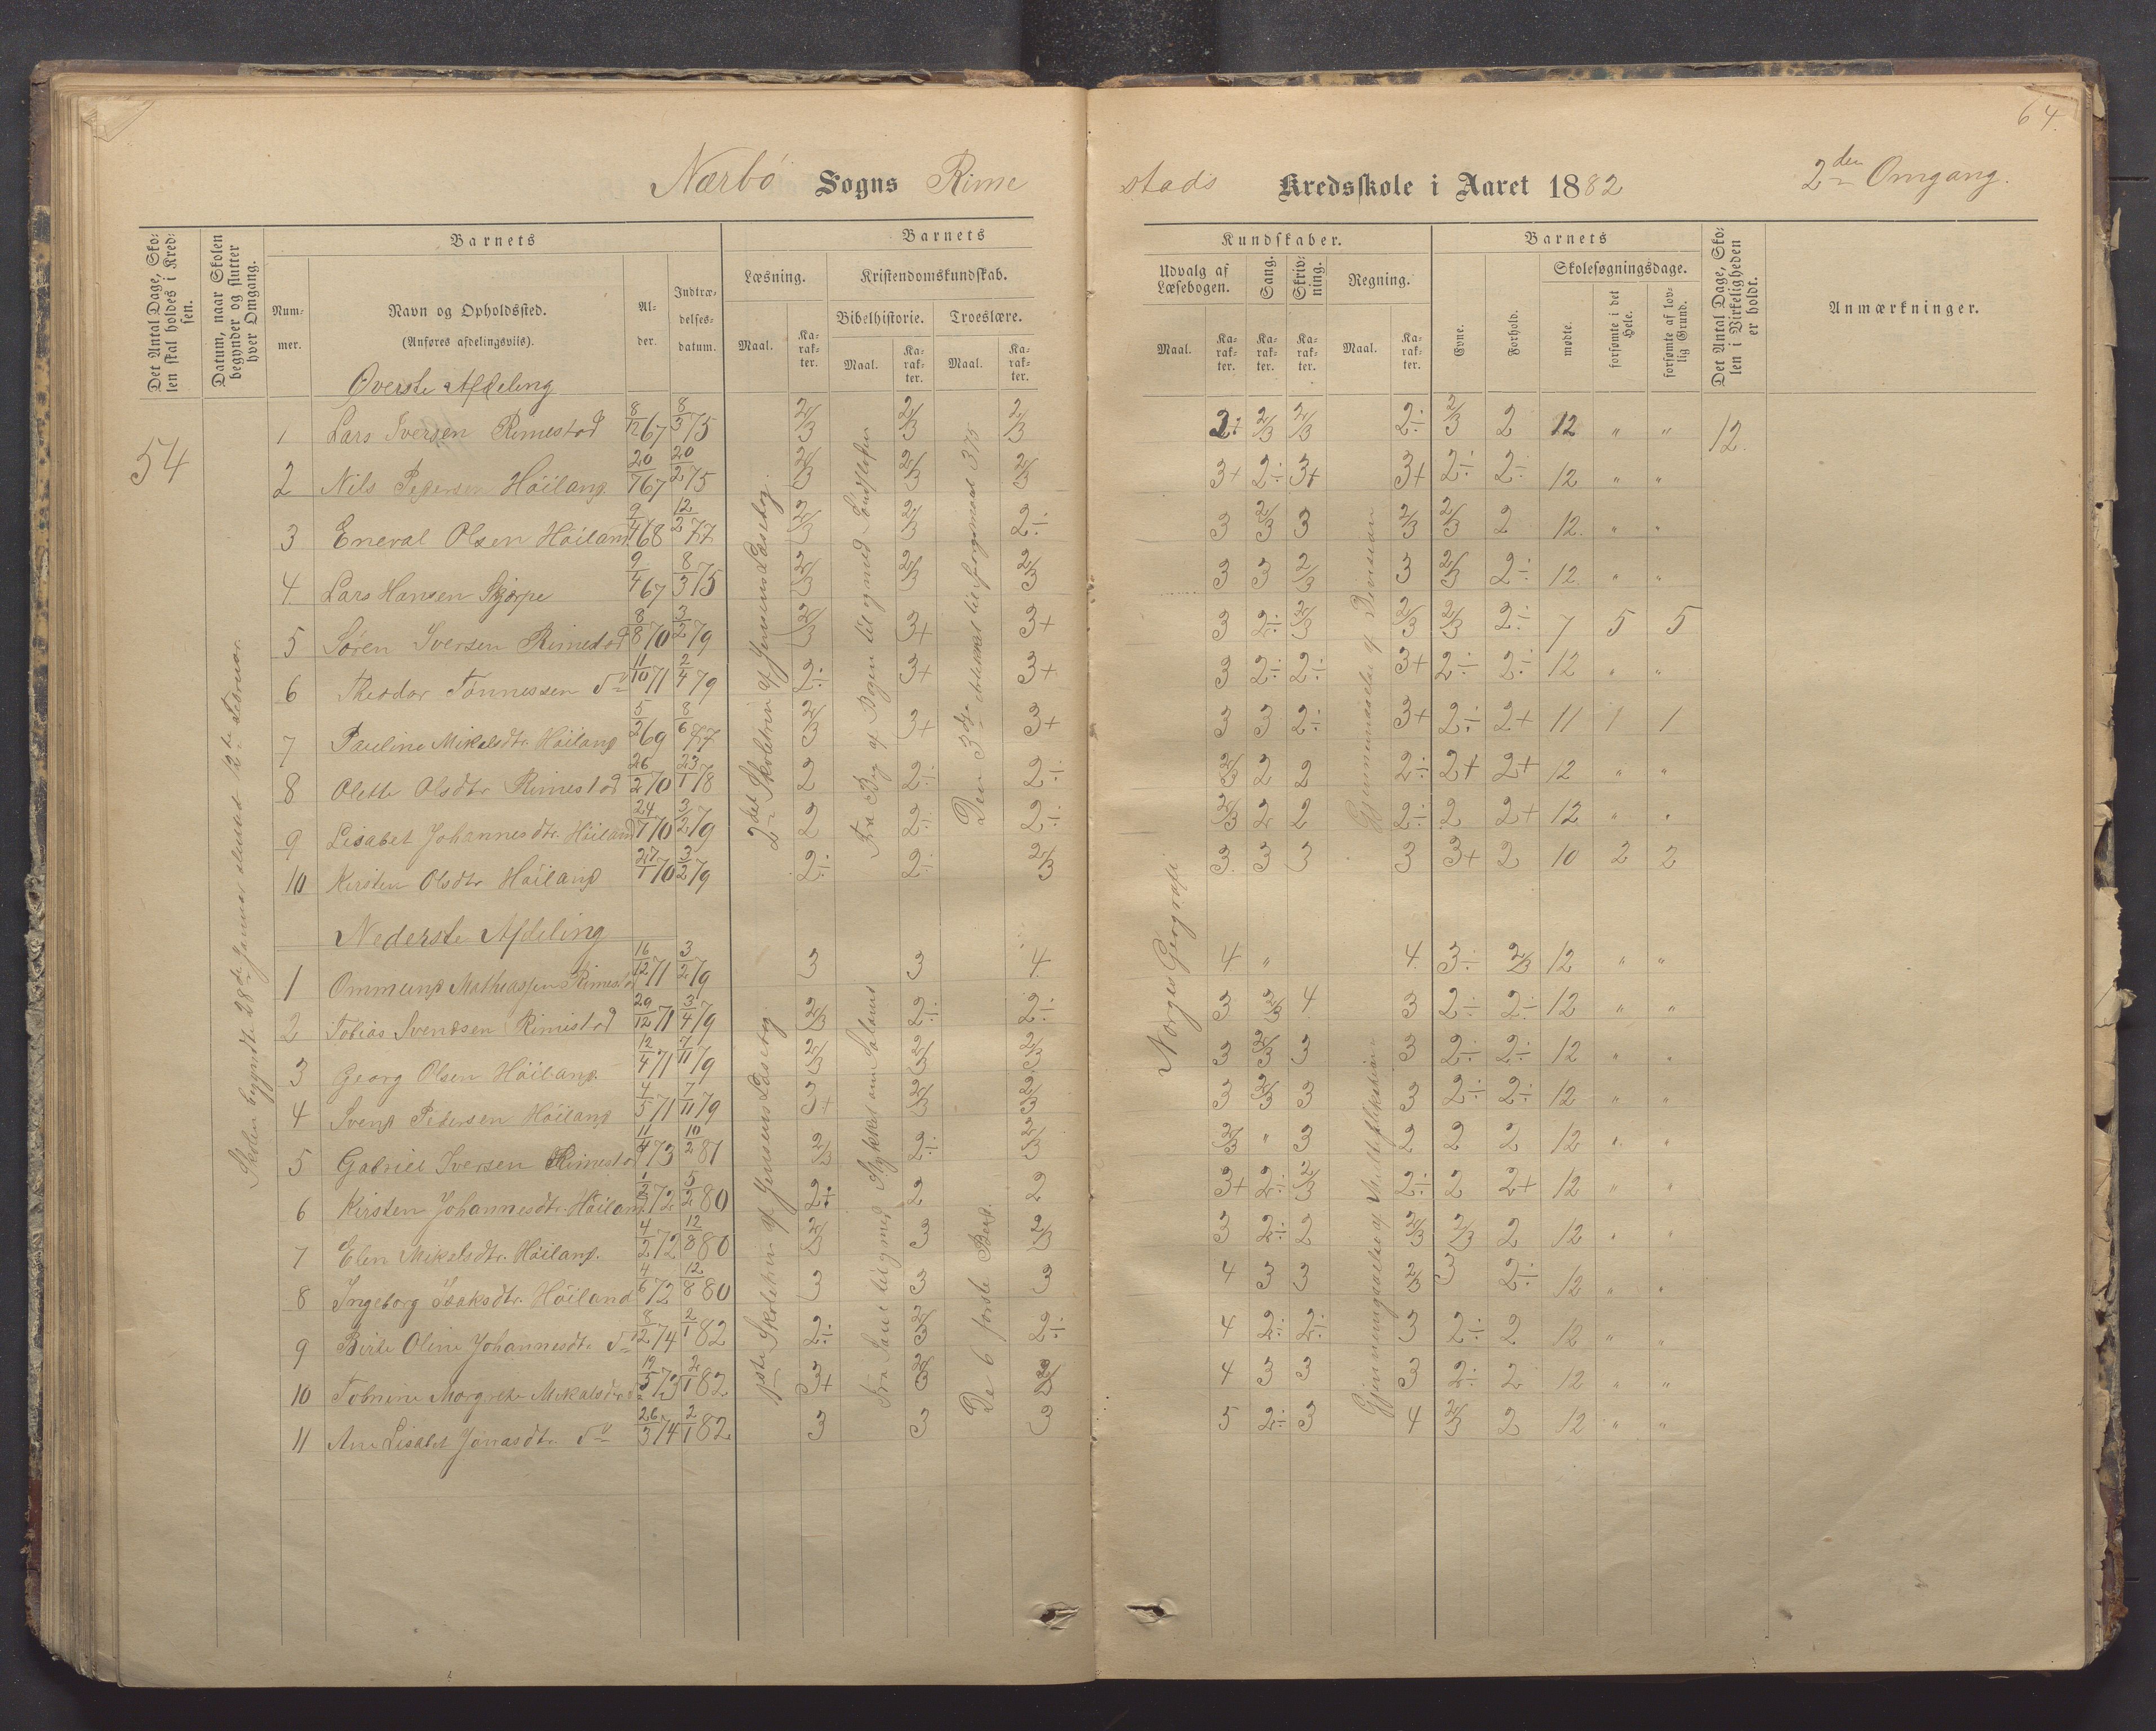 64.
Nærbö Sogns Rime
stads Kredsskole i Aaret 1882
2den Omgang.
Det Antal Dage, Sko-
len skal holdes i Kred-
sen.
Datum, naar Skolen
begynder og slutter
hver Omgang.
Barnets
Num-
mer.
Navn og Opholdssted.
(Anføres afdelingsvils).
Al-
der.
Indtræ-
delses-
datum.
Barnets
Læsning.
Maal.
Ka-
rak-
ter.
Kristendomskundskab.
Bibelhistorie.
Maal.
Ka-
rak-
ter.
Troeslære.
Maal.
Ka-
rak-
ter.
Kundskaber.
Udvalg af
Læsebogen.
Maal.
Ka-
rak-
ter.
Sang.
Ka-
rak-
ter.
Skriv-
ning.
Ka-
rak-
ter.
Regning.
Maal.
Ka-
rak-
ter.
Barnets
Evne.
Forhold.
Skolesøgningsdage.
mødte.
forsømte i det
Hele.
forsømte af lov-
lig Grund.
Det Antal Dage, Sko-
len i Virkeligheden
er holdt.
Anmærkninger.
54
Skolen begyndte 28de Januar sluttet 12te Februar.
Overste Afdeling
1 Lars Iversen Rimestad 8/12 67 8/3 75 2/3 2/3 2/3 2÷ 2/3 2/3 2÷ 2/3 2 12 " " 12.
2 Nils Pedersen Höiland 20/7 67 20/2 75 2/3 2/3 2/3 3+ 2÷ 3+ 3+ 2÷ 2÷ 12 " "
3 Eneval Olsen Höiland 9/4 68 12/2 77 2/3 2/3 2÷ 3 2/3 3 2/3 2/3 2 12. " "
4. Lars Hansen Skjørpe 9/4 67 8/3 75 2/3 2/3 2/3 3 3 2/3 3 2/3 2÷ 12. " "
5 Søren Iversen Rimestad 8/8 70 3/2 79 2/3 3+ 3+ 3 2÷ 2/3 2/3 2/3 2÷ 7 5 5
6 Theodor Tönnessen do 11/10 71 2/4 79 2÷ 3+ 3+ 3 2÷ 2÷ 3+ 2÷ 2÷ 12 " "
7 Pauline Mikalsdtr. Höiland 5/2 69 8/6 77 2/3 3+ 3+ 3 3 2÷ 3+ 2÷ 2+ 11 1 1
8 Olette Olsdtr Rimestad 26/2 70 23/1 78 2 2÷ 2÷ 2/3 2 2 2÷ 2+ 2+ 12 " "
9 Lisabet Johannesdtr. Höiland 24/7 70 3/2 79 2 2÷ 2÷ 2/3 2 2 2÷ 2 2+ 12 " "
10 Kirsten Olsdtr Höiland 27/1 70 3/2 79 2÷ 2÷ 2/3 3 3 3 3 3+ 2 10 2 2
2det Skoletrin af Jensens Læsebog.
Den 3die Artikkel til spørgsmaal 375
Norges Geografi
Nederste Afdeling
1 Ommund Mathiassen Rimestad 16/12 71 3/2 79 3 3 4. 4 " 4. 3÷ 2/3 12 " "
2 Tobias Svendsen Rimestad 29/12 71 3/4 79 2/3 2÷ 2÷ 3 2/3 4. 3 2÷ 2÷ 12 " "
3 Georg Olsen Höiland. 12/4 71 7/11 79 2/3 2/3 2/3 3 2/3 3 3 2÷ 2÷ 12 " "
4 Svend Pedersen Höiland 4/5 71 7/11 79 3+ 2/3 2/3 3 2/3 3 3 2÷ 2÷ 12 " "
5 Gabriel Iversen Rimestad 11/4 73 10/2 81 2/3 2÷ 2/3 2/3 " 3 2 2 2 12 " "
6 Kirsten Johannesdtr. Höiland 1/3 72 5/2 80 2÷ 2 2 3+ 2÷ 2/3 2÷ 2 2+ 12 " "
7 Elen Mikalsdtr. Höiland. 4/2 72 12/8 80 2/3 3 2/3 3 2÷ 2 2/3 2/3 2 12 " "
8 Ingeborg Isaksdtr. Höiland 4/6 72 12/8 80 3 3 3 4 3 3 2/3 3 2÷ 12 " "
9 Birte Oline Johannesdtr do 8/2 74 2/1 82 2÷ 2/3 2÷ 4 2÷ 2÷ 3 2÷ 2 12 " "
10 Tobnine Margrete Mikalsdtr do 19/5 73 2/1 82 3+ 2/3 2/3 4 3 3 3 2÷ 2 12 " "
11 Ane Lisabet Jonasdtr. do 26/3 74 2/1 82 3 3 3 5 2÷ 3 4 2/3 2 12 " "
1ste Skoletrin af Jensens Læsebog
De 6 første Bud.